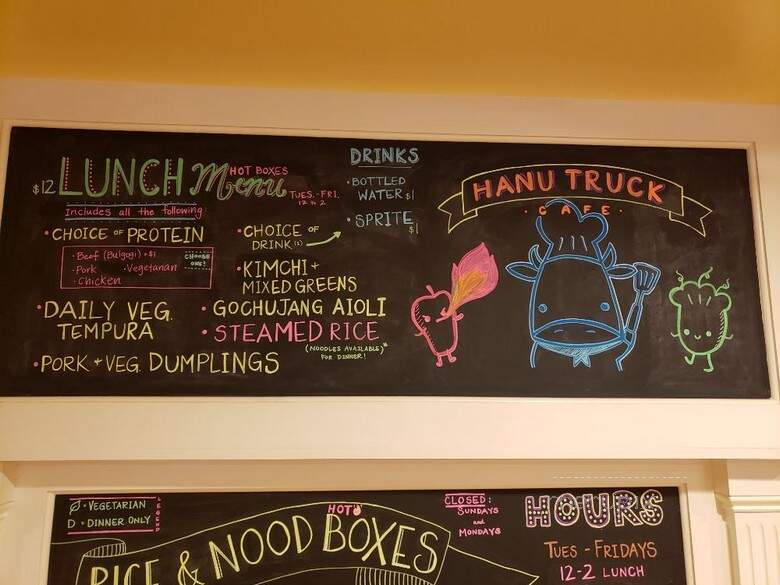 $12 LUNCH Menu HOT BOXES
TUES.-FRI.
12 to 2
Includes all the following
• CHOICE OF PROTEIN
• Beef (Bulgogi) +$1
• Pork • Vegetarian
• Chicken
CHOOSE
ONE!
• DAILY VEG.
TEMPURA
• PORK + VEG. DUMPLINGS
• CHOICE OF
DRINK (1)
• KIMCHI +
MIXED GREENS
• GOCHUJANG AIOLI
• STEAMED RICE
(NOODLES AVAILABLE)*
FOR DINNER!
DRINKS
• BOTTLED
WATER $1
• SPRITE $1
HANU TRUCK
• CAFE •
• VEGETARIAN
D • DINNER ONLY
LEGEND
HOT
RICE & NOOD BOXES
CLOSED:
SUNDAYS
and
MONDAYS
HOURS
TUES - FRIDAYS
12-2 LUNCH